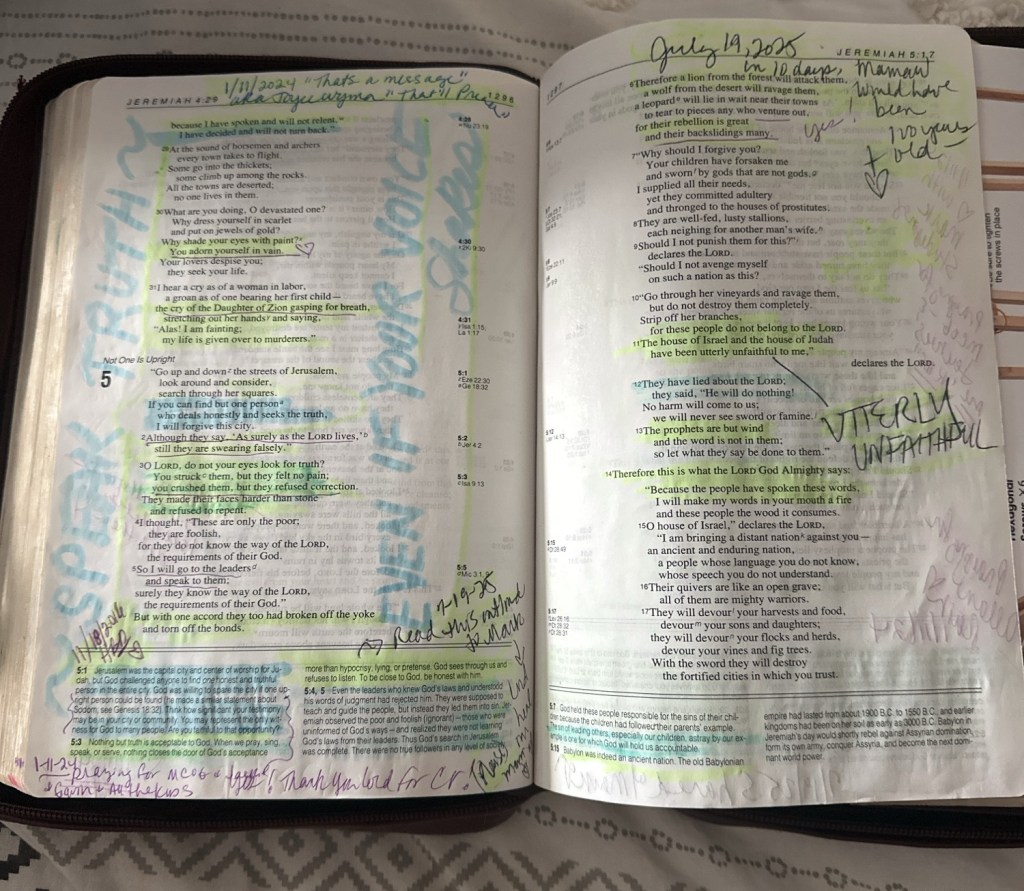 1/11/2024 "Thats a message"
aka Joyce "That'll Preach"
JEREMIAH 4:29
1296
because I have spoken and will not relent,
I have decided and will not turn back."
29At the sound of horsemen and archers
every town takes to flight.
Some go into the thickets;
some climb up among the rocks.
All the towns are deserted;
no one lives in them.
30What are you doing, O devastated one?
Why dress yourself in scarlet
and put on jewels of gold?
Why shade your eyes with paint?
You adorn yourself in vain.
Your lovers despise you;
they seek your life.
31I hear a cry as of a woman in labor,
a groan as of one bearing her first child—
the cry of the Daughter of Zion gasping for breath,
stretching out her hands and saying,
"Alas! I am fainting;
my life is given over to murderers."
Not One Is Upright
5 "Go up and down the streets of Jerusalem,
look around and consider,
search through her squares.
If you can find but one person
who deals honestly and seeks the truth,
I will forgive this city.
2Although they say, 'As surely as the LORD lives,'
still they are swearing falsely."
3O LORD, do not your eyes look for truth?
You struck them, but they felt no pain;
you crushed them, but they refused correction.
They made their faces harder than stone
and refused to repent.
4I thought, "These are only the poor;
they are foolish,
for they do not know the way of the LORD,
the requirements of their God.
5So I will go to the leaders
and speak to them;
surely they know the way of the LORD,
the requirements of their God."
But with one accord they too had broken off the yoke
and torn off the bonds.
SPEAK TRUTH
EVEN IF YOUR VOICE
Shakes
4:30
4:31
5:1
5:2
5:3
5:5
7-19-25
Read this outloud
to Mark
5:1 Jerusalem was the capital city and center of worship for Ju-
dah, but God challenged anyone to find one honest and truthful
person in the entire city. God was willing to spare the city if one up-
right person could be found (he made a similar statement about
Sodom; see Genesis 18:32). Think how significant your testimony
may be in your city or community. You may represent the only wit-
ness for God to many people! Are you faithful to that opportunity?
5:3 Nothing but truth is acceptable to God. When we pray, sing,
speak, or serve, nothing closes the door of God's acceptance
more than hypocrisy, lying, or pretense. God sees through us and
refuses to listen. To be close to God, be honest with him.
5:4, 5 Even the leaders who knew God's laws and understood
his words of judgment had rejected him. They were supposed to
teach and guide the people, but instead they led them into sin. Jer-
emiah observed the poor and foolish (ignorant)—those who were
uninformed of God's ways—and realized they were not learning
God's laws from their leaders. Thus God's search in Jerusalem
was complete. There were no true followers in any level of society.
1-11-24 praying for
Thank you Lord for
July 19, 2025
JEREMIAH 5:17
in 10 days, Mamaw
would have
been
100 years
old
yes!
6Therefore a lion from the forest will attack them,
a wolf from the desert will ravage them,
a leopard will lie in wait near their towns
to tear to pieces any who venture out,
for their rebellion is great
and their backslidings many.
7"Why should I forgive you?
Your children have forsaken me
and sworn by gods that are not gods.
I supplied all their needs,
yet they committed adultery
and thronged to the houses of prostitutes.
8They are well-fed, lusty stallions,
each neighing for another man's wife.
9Should I not punish them for this?"
declares the LORD.
"Should I not avenge myself
on such a nation as this?
10"Go through her vineyards and ravage them,
but do not destroy them completely.
Strip off her branches,
for these people do not belong to the LORD.
11The house of Israel and the house of Judah
have been utterly unfaithful to me,"
declares the LORD.
12They have lied about the LORD;
they said, "He will do nothing!
No harm will come to us;
we will never see sword or famine.
13The prophets are but wind
and the word is not in them;
so let what they say be done to them."
UTTERLY
UNFAITHFUL
14Therefore this is what the LORD God Almighty says:
"Because the people have spoken these words,
I will make my words in your mouth a fire
and these people the wood it consumes.
15O house of Israel," declares the LORD,
"I am bringing a distant nation against you—
an ancient and enduring nation,
a people whose language you do not know,
whose speech you do not understand.
16Their quivers are like an open grave;
all of them are mighty warriors.
17They will devour your harvests and food,
devour your sons and daughters;
they will devour your flocks and herds,
devour your vines and fig trees.
With the sword they will destroy
the fortified cities in which you trust.
5:7 God held these people responsible for the sins of their chil-
dren because the children had followed their parents' example.
The sin of leading others, especially our children, astray by our ex-
ample is one for which God will hold us accountable.
5:15 Babylon was indeed an ancient nation. The old Babylonian
empire had lasted from about 1900 B.C. to 1550 B.C., and earlier
kingdoms had been on her soil as early as 3000 B.C. Babylon in
Jeremiah's day would shortly rebel against Assyrian domination,
form its own army, conquer Assyria, and become the next domi-
nant world power.
the screws in place